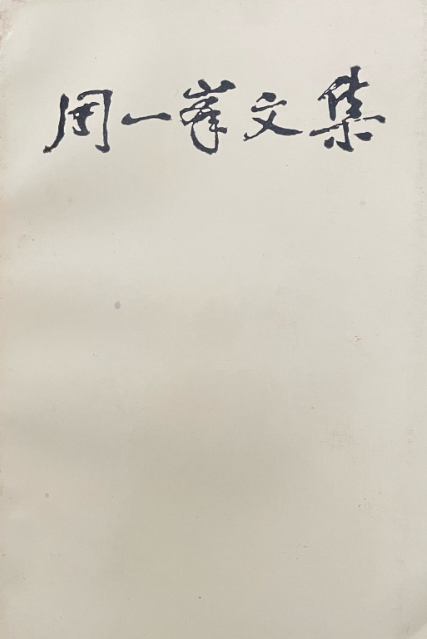 周一峯文集